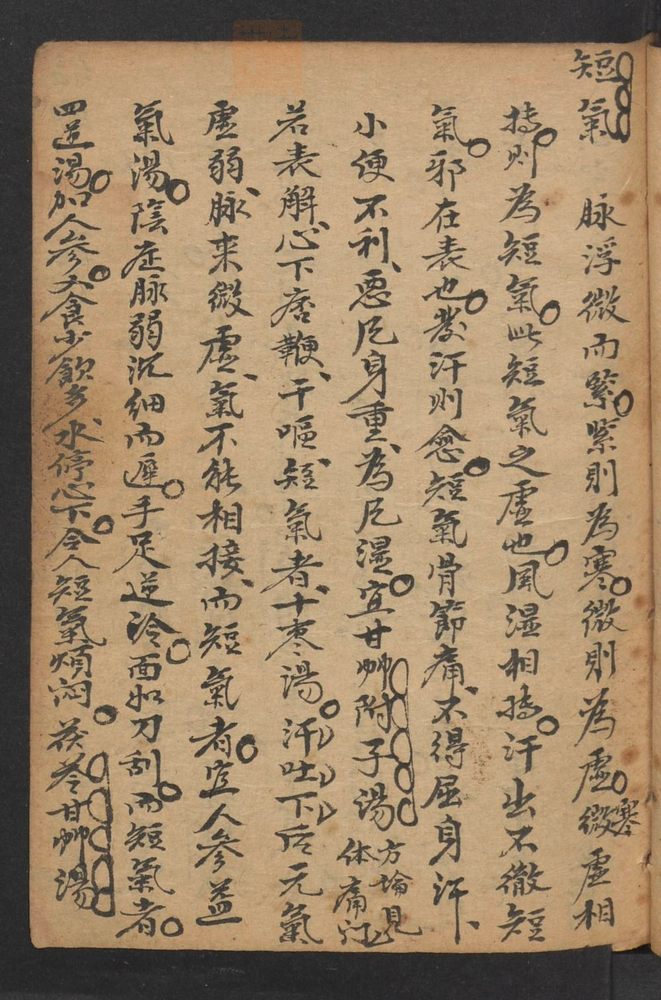 短氣　脉浮微而緊。緊則為寒。微則為虛。微寒虛相
搏。則為短氣。此短氣之虛也。風湿相搏。汗出不徹短
氣。邪在表也。發汗則愈。短氣骨節痛、不得屈身汗、
小便不利、惡風身重、為風濕。宜甘艸附子湯方論見体痛門
若表解、心下痞鞭、干嘔、短氣者、十枣湯。汗吐下后元氣
虛弱、脉来微虛、氣不能相接、而短氣者。宜人參益
氣湯。陰症脉弱沉細而遲。手足逆冷。面如刀刮。而短氣者。
四逆湯。加人參。又食少飲多、水停心下。令人短氣煩闷。茯苓甘艸湯